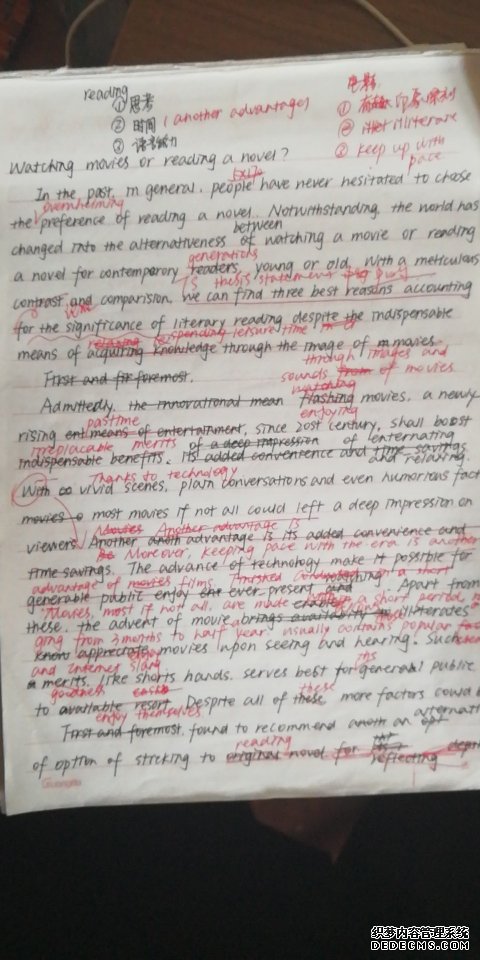 reading
①思考
② 时间 (another advantage)
③ 语言能力
电影:
① 印象深刻
② illiterare
③ keep up with
pace
Watching movies or reading a novel?
In the past, in general, people have never hesitated to choose
overwhelming
the preference of reading a novel. Notwithstanding, the world has
between
changed into the alternativeness of watching a movie or reading
generations
a novel for contemporary readers, young or old. With a meticulous
Ts thesis statement
contrast and comparision, we can find three best reasons accounting
for the significance of literary reading despite the indispensable
spending leisure time
means of acquiring knowledge through the image of movies.
through images and
First and foremost,
sounds from of movies
watching
Admittedly, the innovational mean flashing movies, a newly
pastime
enjoying
rising means of entertainment, since 20st century, shall boost
irreplacable merits of a deep impression of entertaining
indispensable benefits. Its added convenience and time savings
and relaxing.
Thanks to technology
With vivid scenes, plain conversations and even humorious fact
movies most movies if not all could left a deep impression on
Movies Another advantage is
viewers. Another advantage is its added convenience and
Moreover, keeping pace with the era is another
time savings. The advance of technology make it possible for
advantage of movies films.
generable public enjoy ever present and Apart from
Movies, most if not all, are made a short period
these, the advent of movie brings availability illiterates
ging from 3 months to half year, usually contains popular
know appreciate movies upon seeing and hearing. Such
and Internet slang
merits, like shorts hands, serves best for general public
goodness
these
to available resort. Despite all of these, more factors could
enjoy themselves
alternat
First and foremost, found to recommend
reading
of option of sticking to original novel for reflecting depth
Guangbo
织梦内容管理系统
DEDECMS.COM